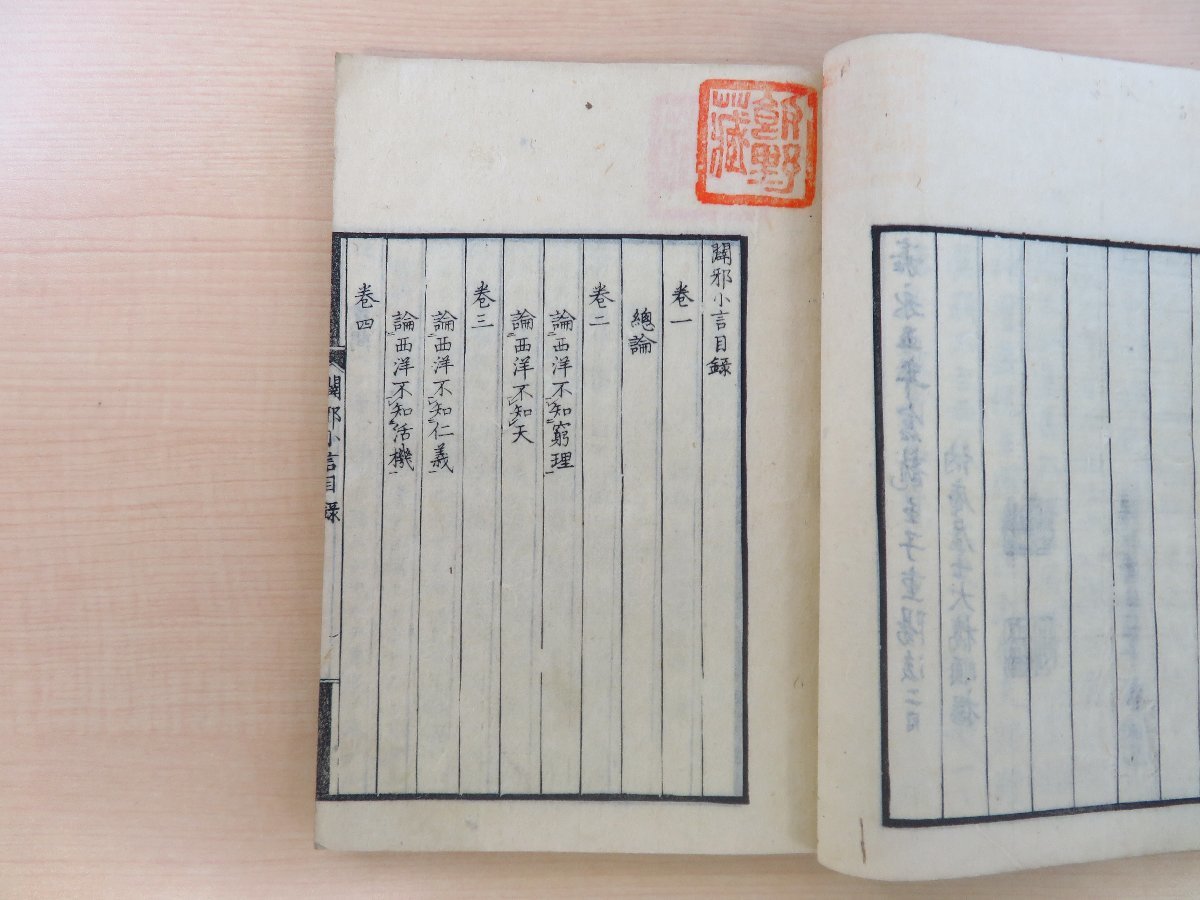 朝野
藏
闢邪小言目錄
卷一
總論
卷二
論西洋不知窮理
論西洋不知天
卷三
論西洋不知仁義
論西洋不知活機
卷四
闢邪小言目錄